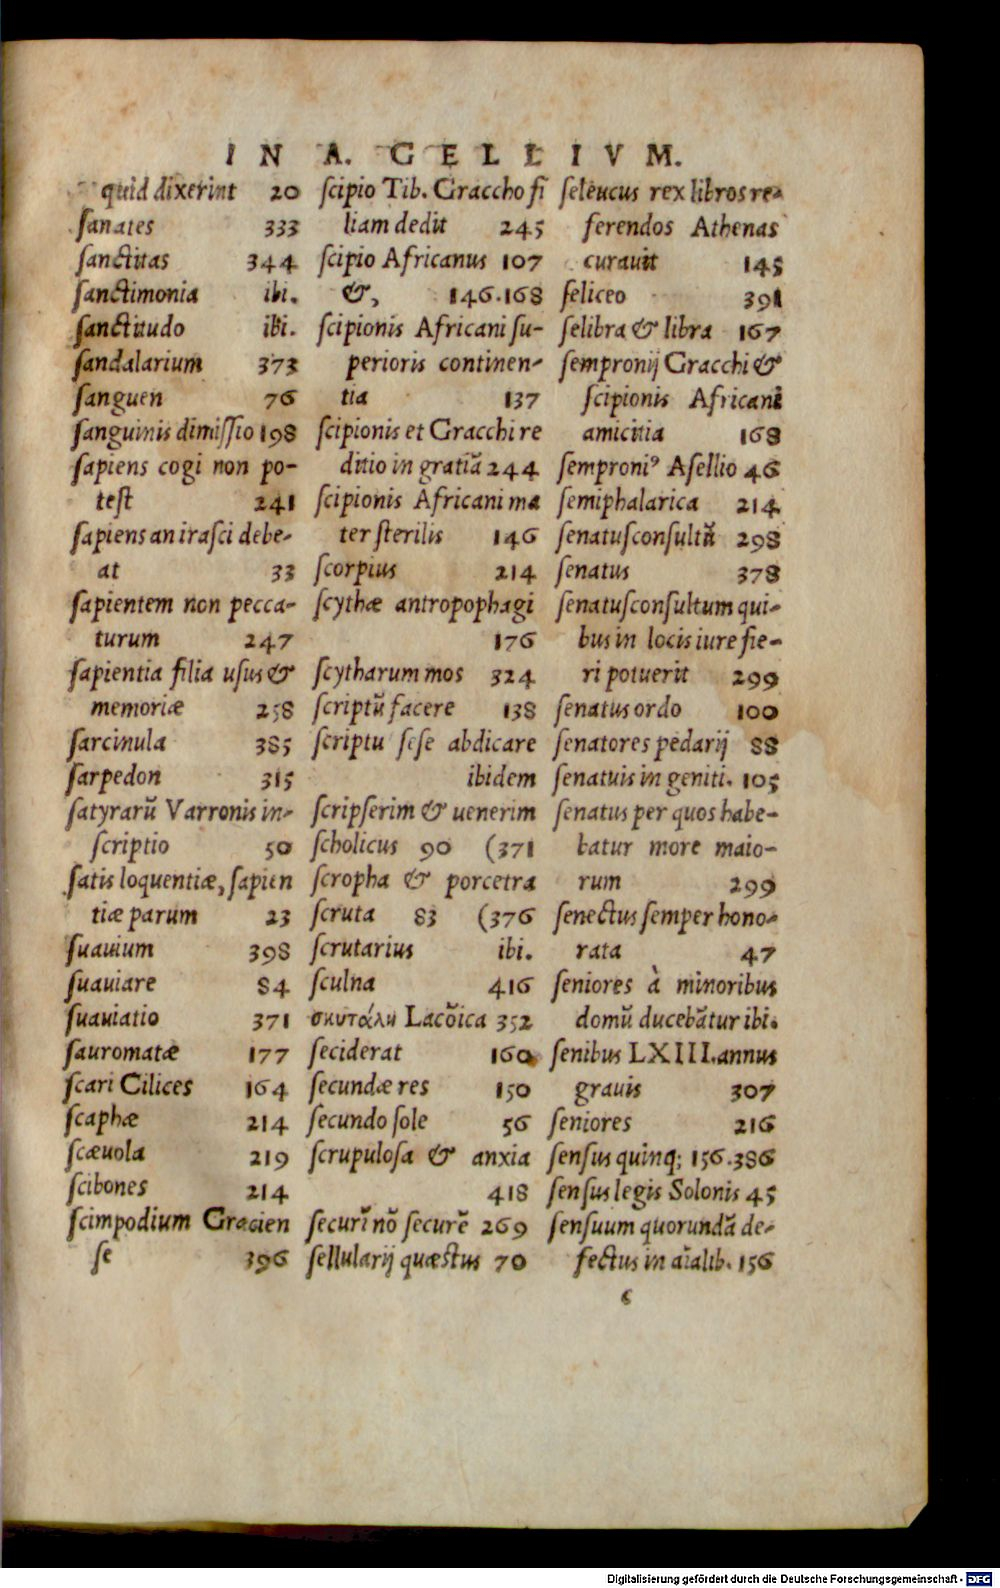 IN A. GELLIVM.
quid dixerint 20
ſanates 333
ſanctitas 344
ſanctimonia ibi.
ſanctitudo ibi.
ſandalarium 373
ſanguen 76
ſanguinis dimiſſio 198
ſapiens cogi non po-
teſt 241
ſapiens an iraſci debe-
at 33
ſapientem non pecca-
turum 247
ſapientia filia uſus &
memoriæ 258
ſarcinula 385
ſarpedon 315
ſatyrarũ Varronis in-
ſcriptio 50
ſatis loquentiæ, ſapien
tiæ parum 23
ſuauium 398
ſuauiare 84
ſuauiatio 371
ſauromatæ 177
ſcari Cilices 164
ſcaphæ 214
ſcæuola 219
ſcibones 214
ſcimpodium Gracien
ſe 396
ſcipio Tib. Graccho fi
liam dedit 245
ſcipio Africanus 107
&, 146.168
ſcipionis Africani ſu-
perioris continen-
tia 137
ſcipionis et Gracchi re
ditio in gratiã 244
ſcipionis Africani ma
ter ſterilis 146
ſcorpius 214
ſcythæ antropophagi
176
ſcytharum mos 324
ſcriptũ facere 138
ſcriptu ſeſe abdicare
ibidem
ſcripſerim & uenerim
ſcholicus 90 (371
ſcropha & porcetra
ſcruta 83 (376
ſcrutarius ibi.
ſculna 416
σκυτάλη Lacõica 352
ſeciderat 160
ſecundæ res 150
ſecundo ſole 56
ſcrupuloſa & anxia
418
ſecurĩ nõ ſecurẽ 269
ſellularij quæstus 70
ſeleucus rex libros re-
ferendos Athenas
curauit 145
ſeliceo 391
ſelibra & libra 167
ſempronij Gracchi &
ſcipionis Africani
amicitia 168
ſemproniꝰ Aſellio 46
ſemiphalarica 214
ſenatuſconſultũ 298
ſenatus 378
ſenatuſconſultum qui-
bus in locis iure fie-
ri potuerit 299
ſenatus ordo 100
ſenatores pedarij 88
ſenatuis in geniti. 105
ſenatus per quos habe-
batur more maio-
rum 299
ſenectus ſemper hono-
rata 47
ſeniores à minoribus
domũ ducebãtur ibi.
ſenibus LXIII. annus
grauis 307
ſeniores 216
ſenſus quinq; 156.386
ſenſus legis Solonis 45
ſenſuum quorundã de-
fectus in aĩalib. 156
c
Digitalisierung gefördert durch die Deutsche Forschungsgemeinschaft - DFG